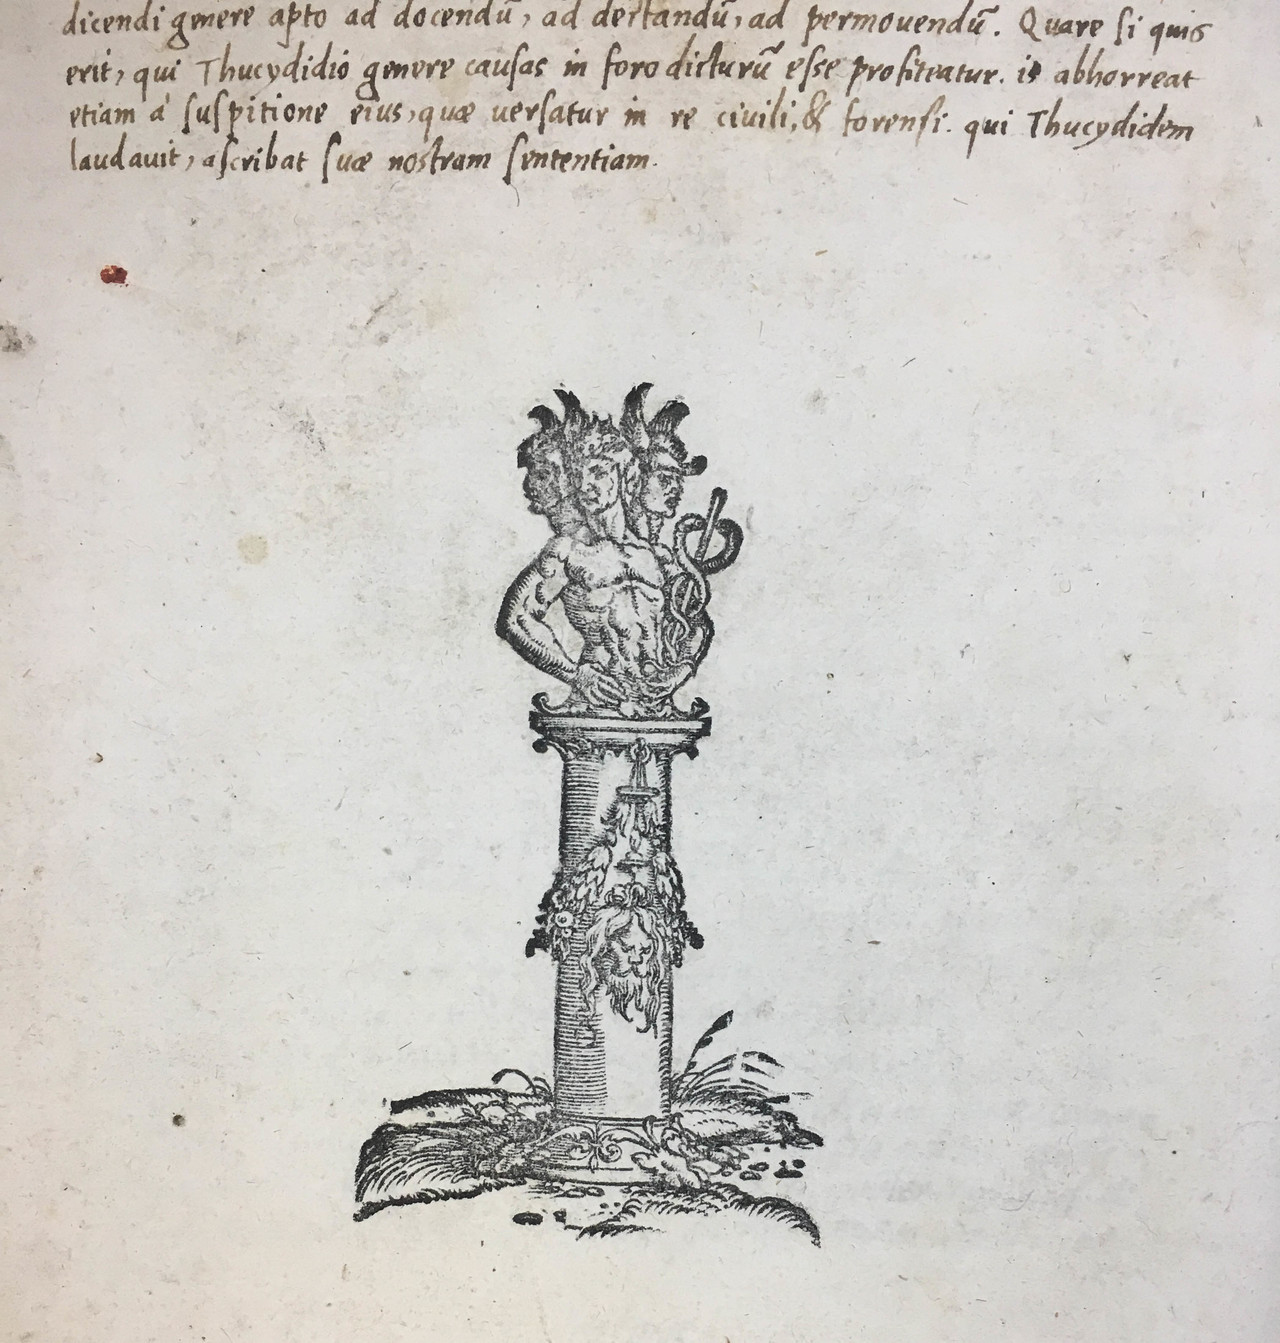 dicendi genere apto ad docendū, ad delectandū, ad permouendū. Quare si quis
erit, qui Thucydidio genere causas in foro dicturū esse profiteatur. is abhorreat
etiam á suspitione eius, quæ versatur in re ciuili, & forensi. qui Thucydidem
laudauit, ascribat suæ nostram sententiam.